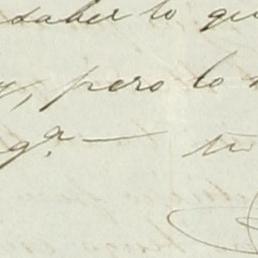 saber lo qu
y, pero lo
g.ª — tu